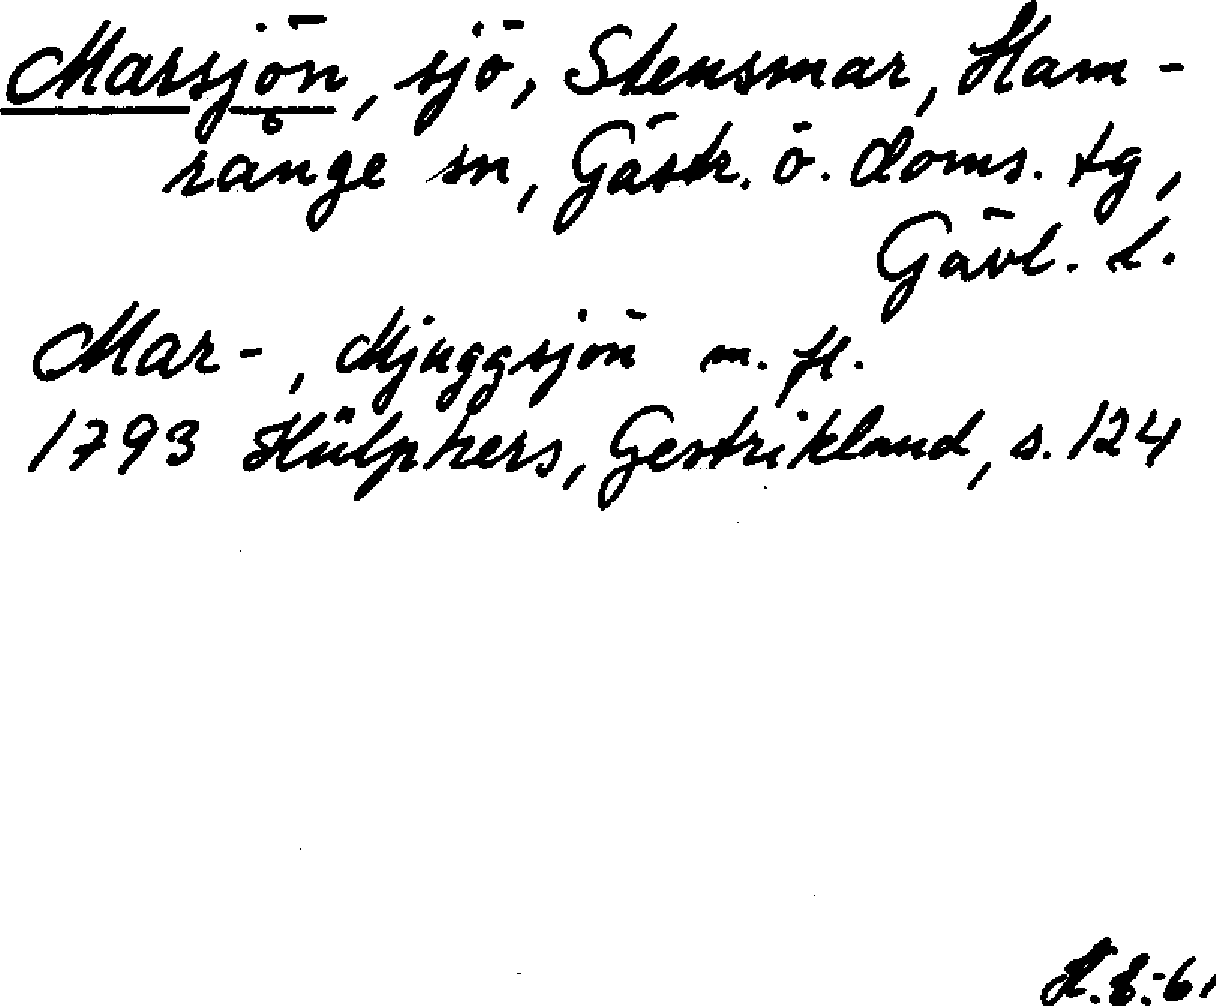 Marsjön, sjö, Stensmar, Ham-
rånge sn, Gästr. ö. doms. tg,
Gävl. l.
Mar-, Mjuggsjön m. fl.
1793 Hülphers, Gestrikland, s. 124
H.E.-61